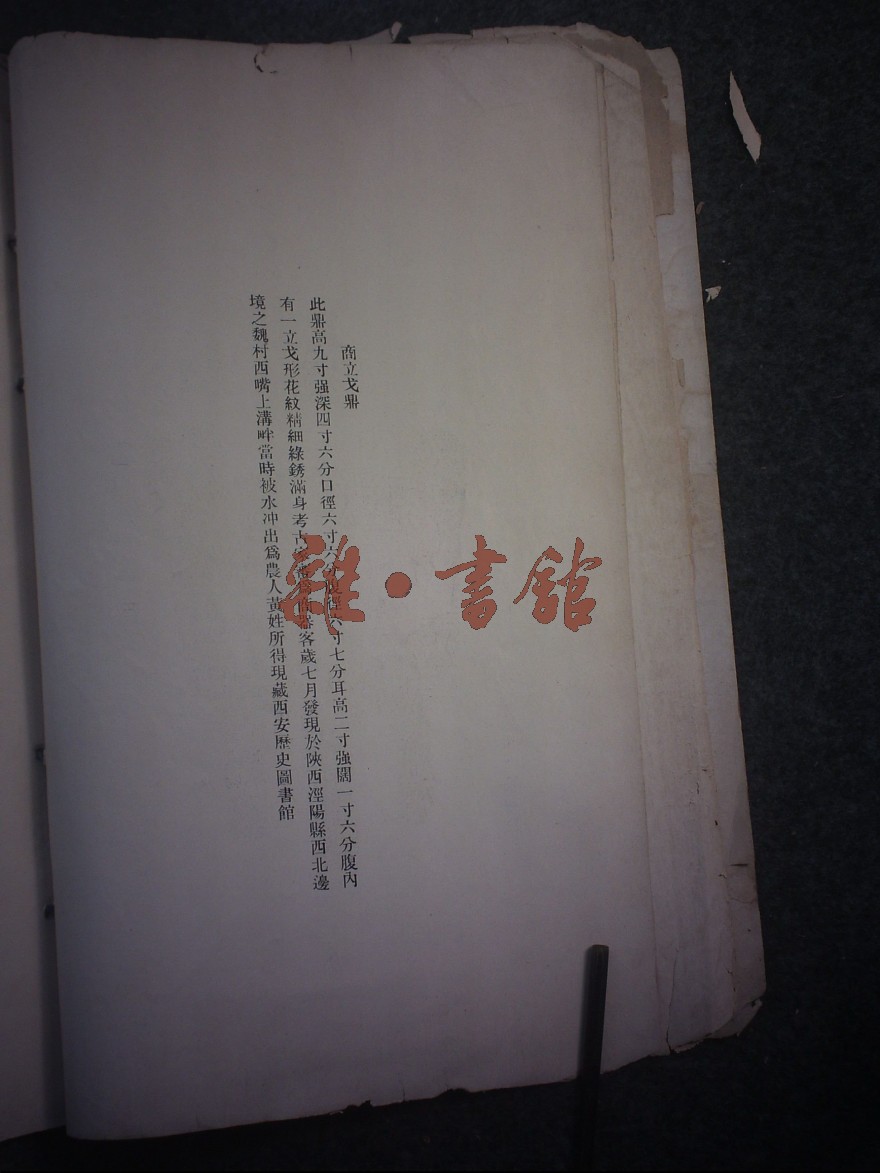 商立戈鼎
此鼎高九寸强深四寸六分口徑六寸六分腹徑六寸七分耳高二寸強闊一寸六分腹內
有一立戈形花紋精細綠銹滿身考古器客歲七月發現於陝西涇陽縣西北邊
境之魏村西嘴上溝畔當時被水冲出爲農人黃姓所得現藏西安歷史圖書館
雜·書館